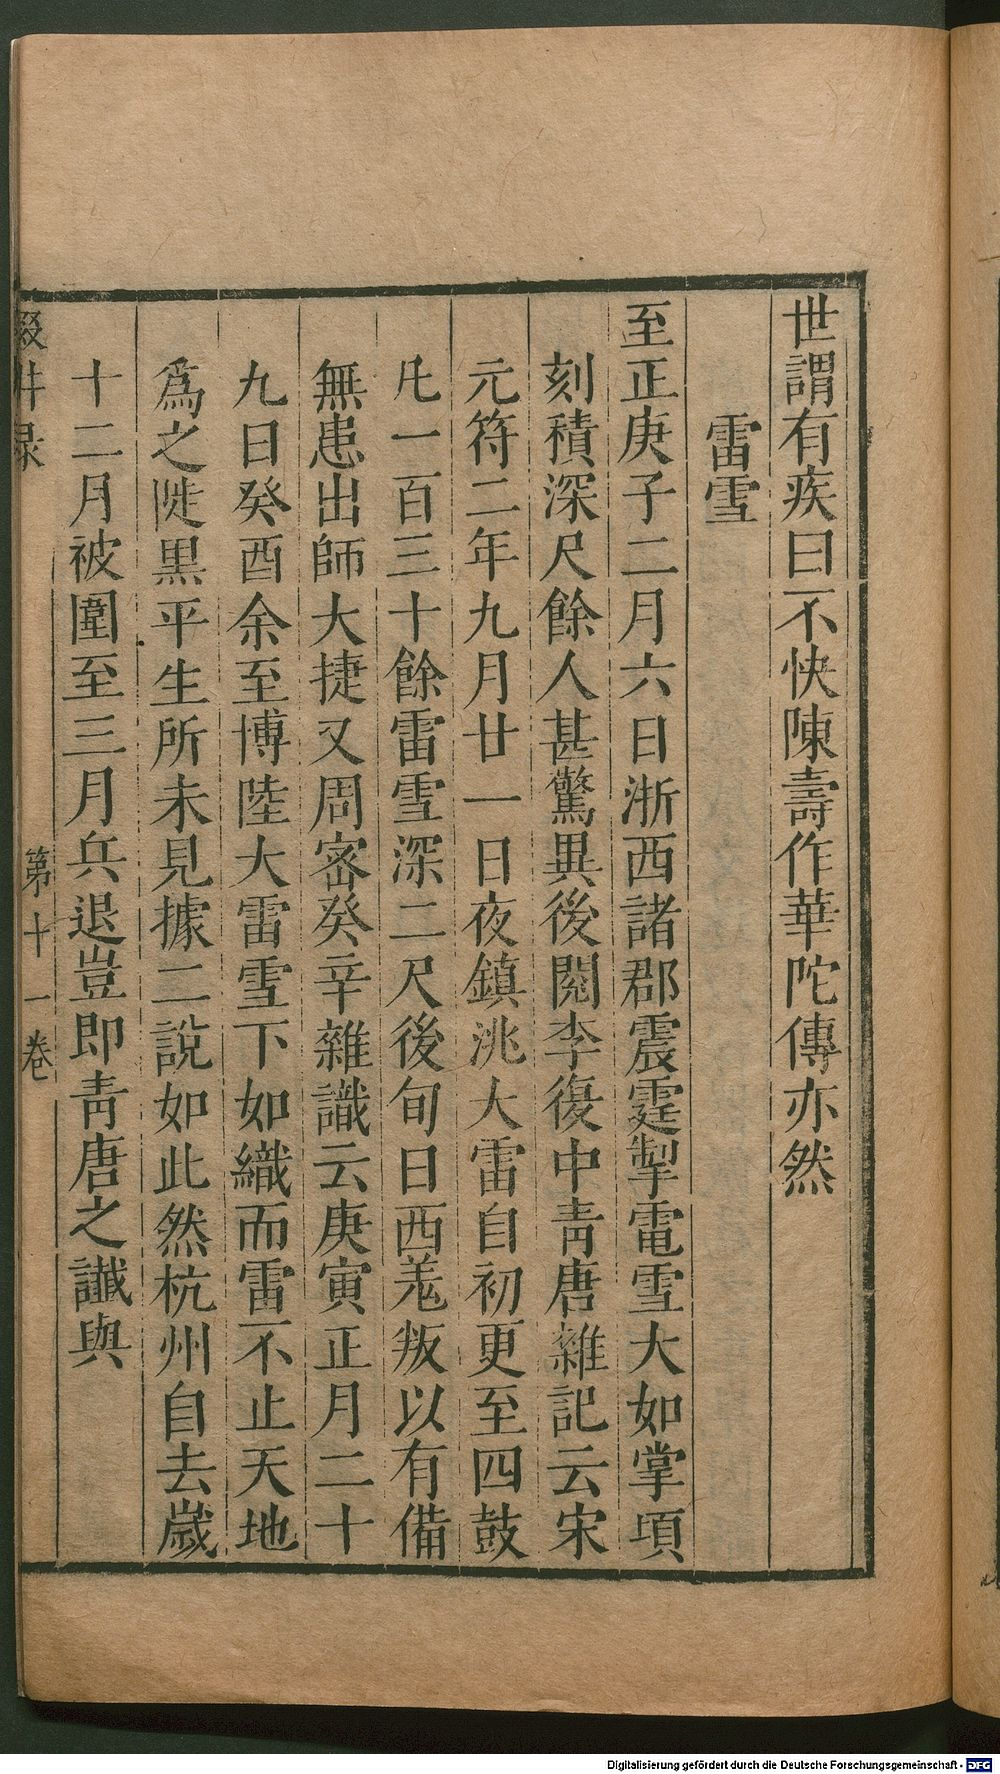 世謂有疾曰不快陳壽作華陀傳亦然
雷雪
至正庚子二月六日浙西諸郡震霆掣電雪大如掌頃
刻積深尺餘人甚驚異後閱李復中靑唐雜記云宋
元符二年九月廿一日夜鎮洮大雷自初更至四鼓
凡一百三十餘雷雪深二尺後旬日西羌叛以有備
無患出師大捷又周密癸辛雜識云庚寅正月二十
九日癸酉余至博陸大雷雪下如織而雷不止天地
爲之陡黒平生所未見據二說如此然杭州自去歲
十二月被圍至三月兵退豈即靑唐之讖與
輟耕录
第十一卷
Digitalisierung gefördert durch die Deutsche Forschungsgemeinschaft - DFG